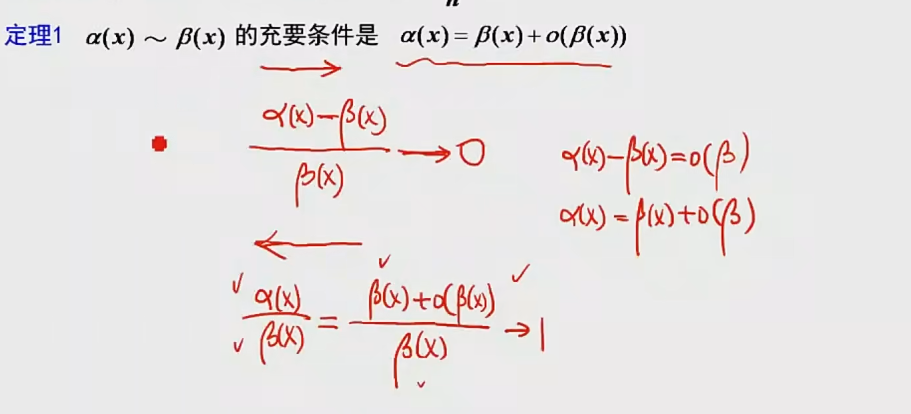 n
定理1 α(x) ~ β(x) 的充要条件是 α(x) = β(x) + o(β(x))
α(x)-β(x) / β(x) → 0
α(x)-β(x)=o(β)
α(x)=β(x)+o(β)
α(x)/β(x) = β(x)+o(β(x)) / β(x) → 1